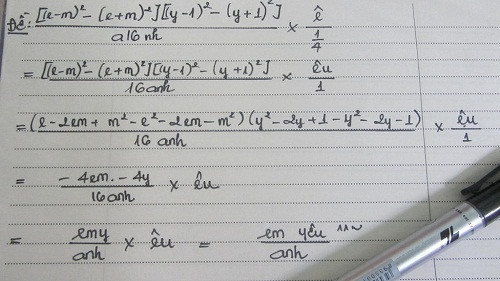 Đề: [(e-m)² - (e+m)²][(y-1)² - (y+1)²] / a16nh × ê / (1/4)
= [(e-m)² - (e+m)²][(y-1)² - (y+1)²] / 16anh × êu / 1
= (e - 2em + m² - e² - 2em - m²)(y² - 2y + 1 - y² - 2y - 1) / 16anh × êu / 1
= - 4em. - 4y / 16anh × êu
= emy / anh × êu = em yêu / anh